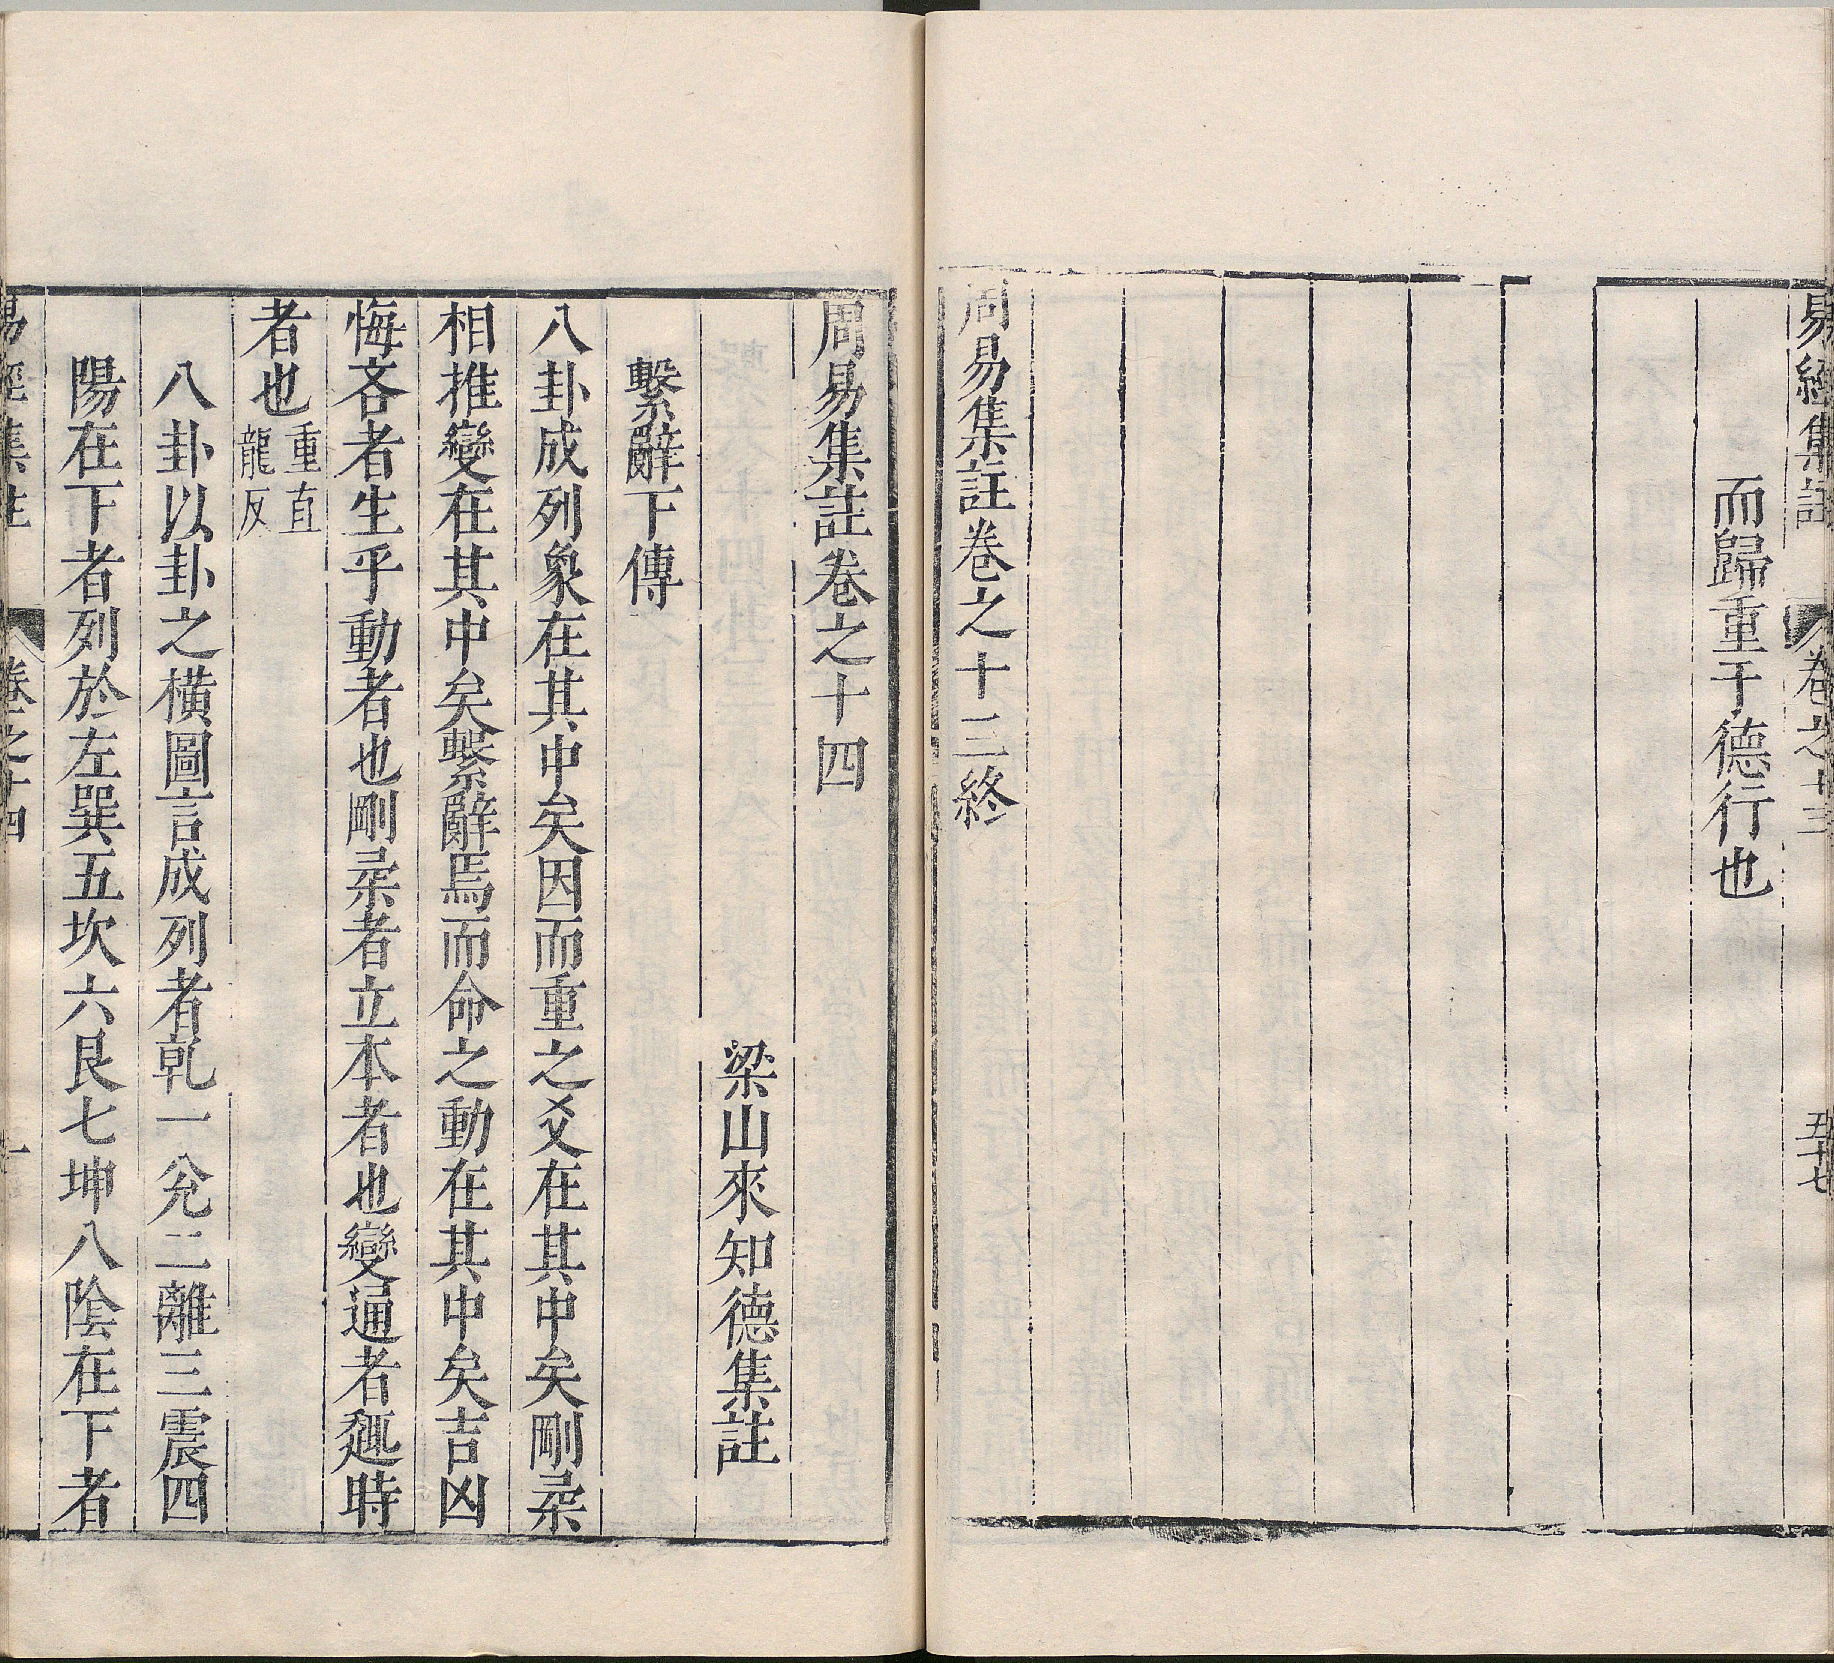 易經集註 卷之十三 五十七
而歸重于德行也
周易集註卷之十三終
周易集註卷之十四
梁山來知德集註
繫辭下傳
八卦成列象在其中矣因而重之爻在其中矣剛柔
相推變在其中矣繫辭焉而命之動在其中矣吉凶
悔吝者生乎動者也剛柔者立本者也變通者趣時
者也重直龍反
八卦以卦之橫圖言成列者乾一兌二離三震四
陽在下者列於左巽五坎六艮七坤八陰在下者
易經集註 卷之十四 一